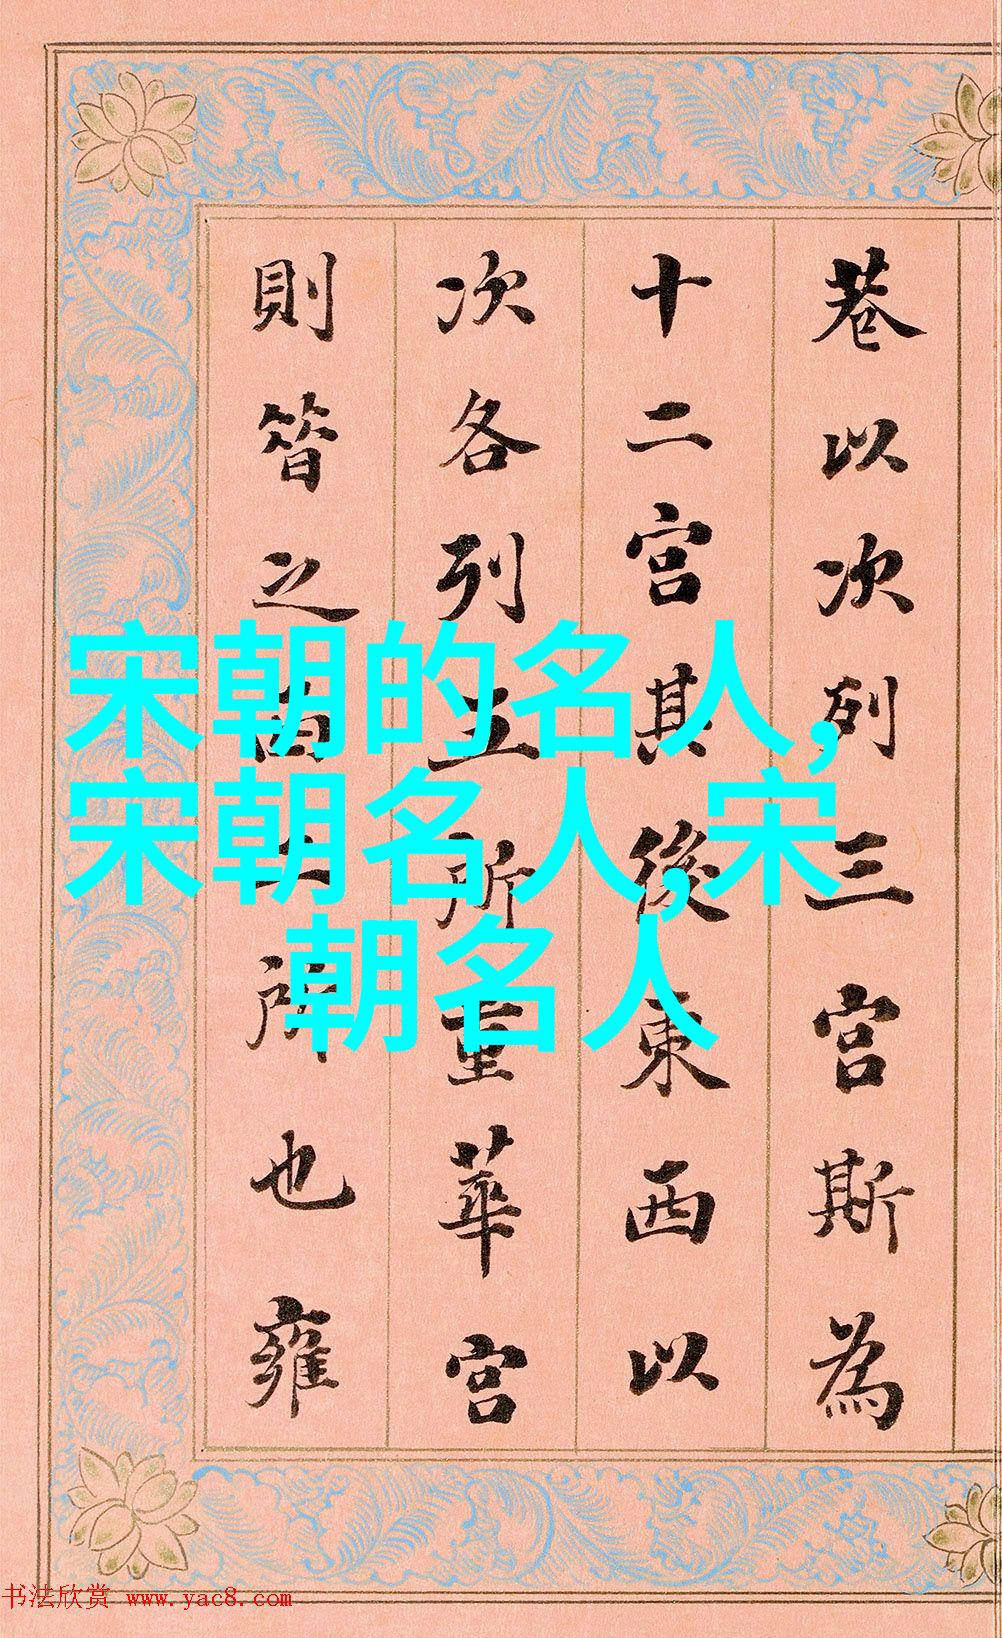 巷以次列三宫斯為
十二宫其後東西以
次各列五所重華宫
則之西所也雍
宋朝的名人,
宋朝名人,宋
朝名人
书法欣赏 www.yac8.com